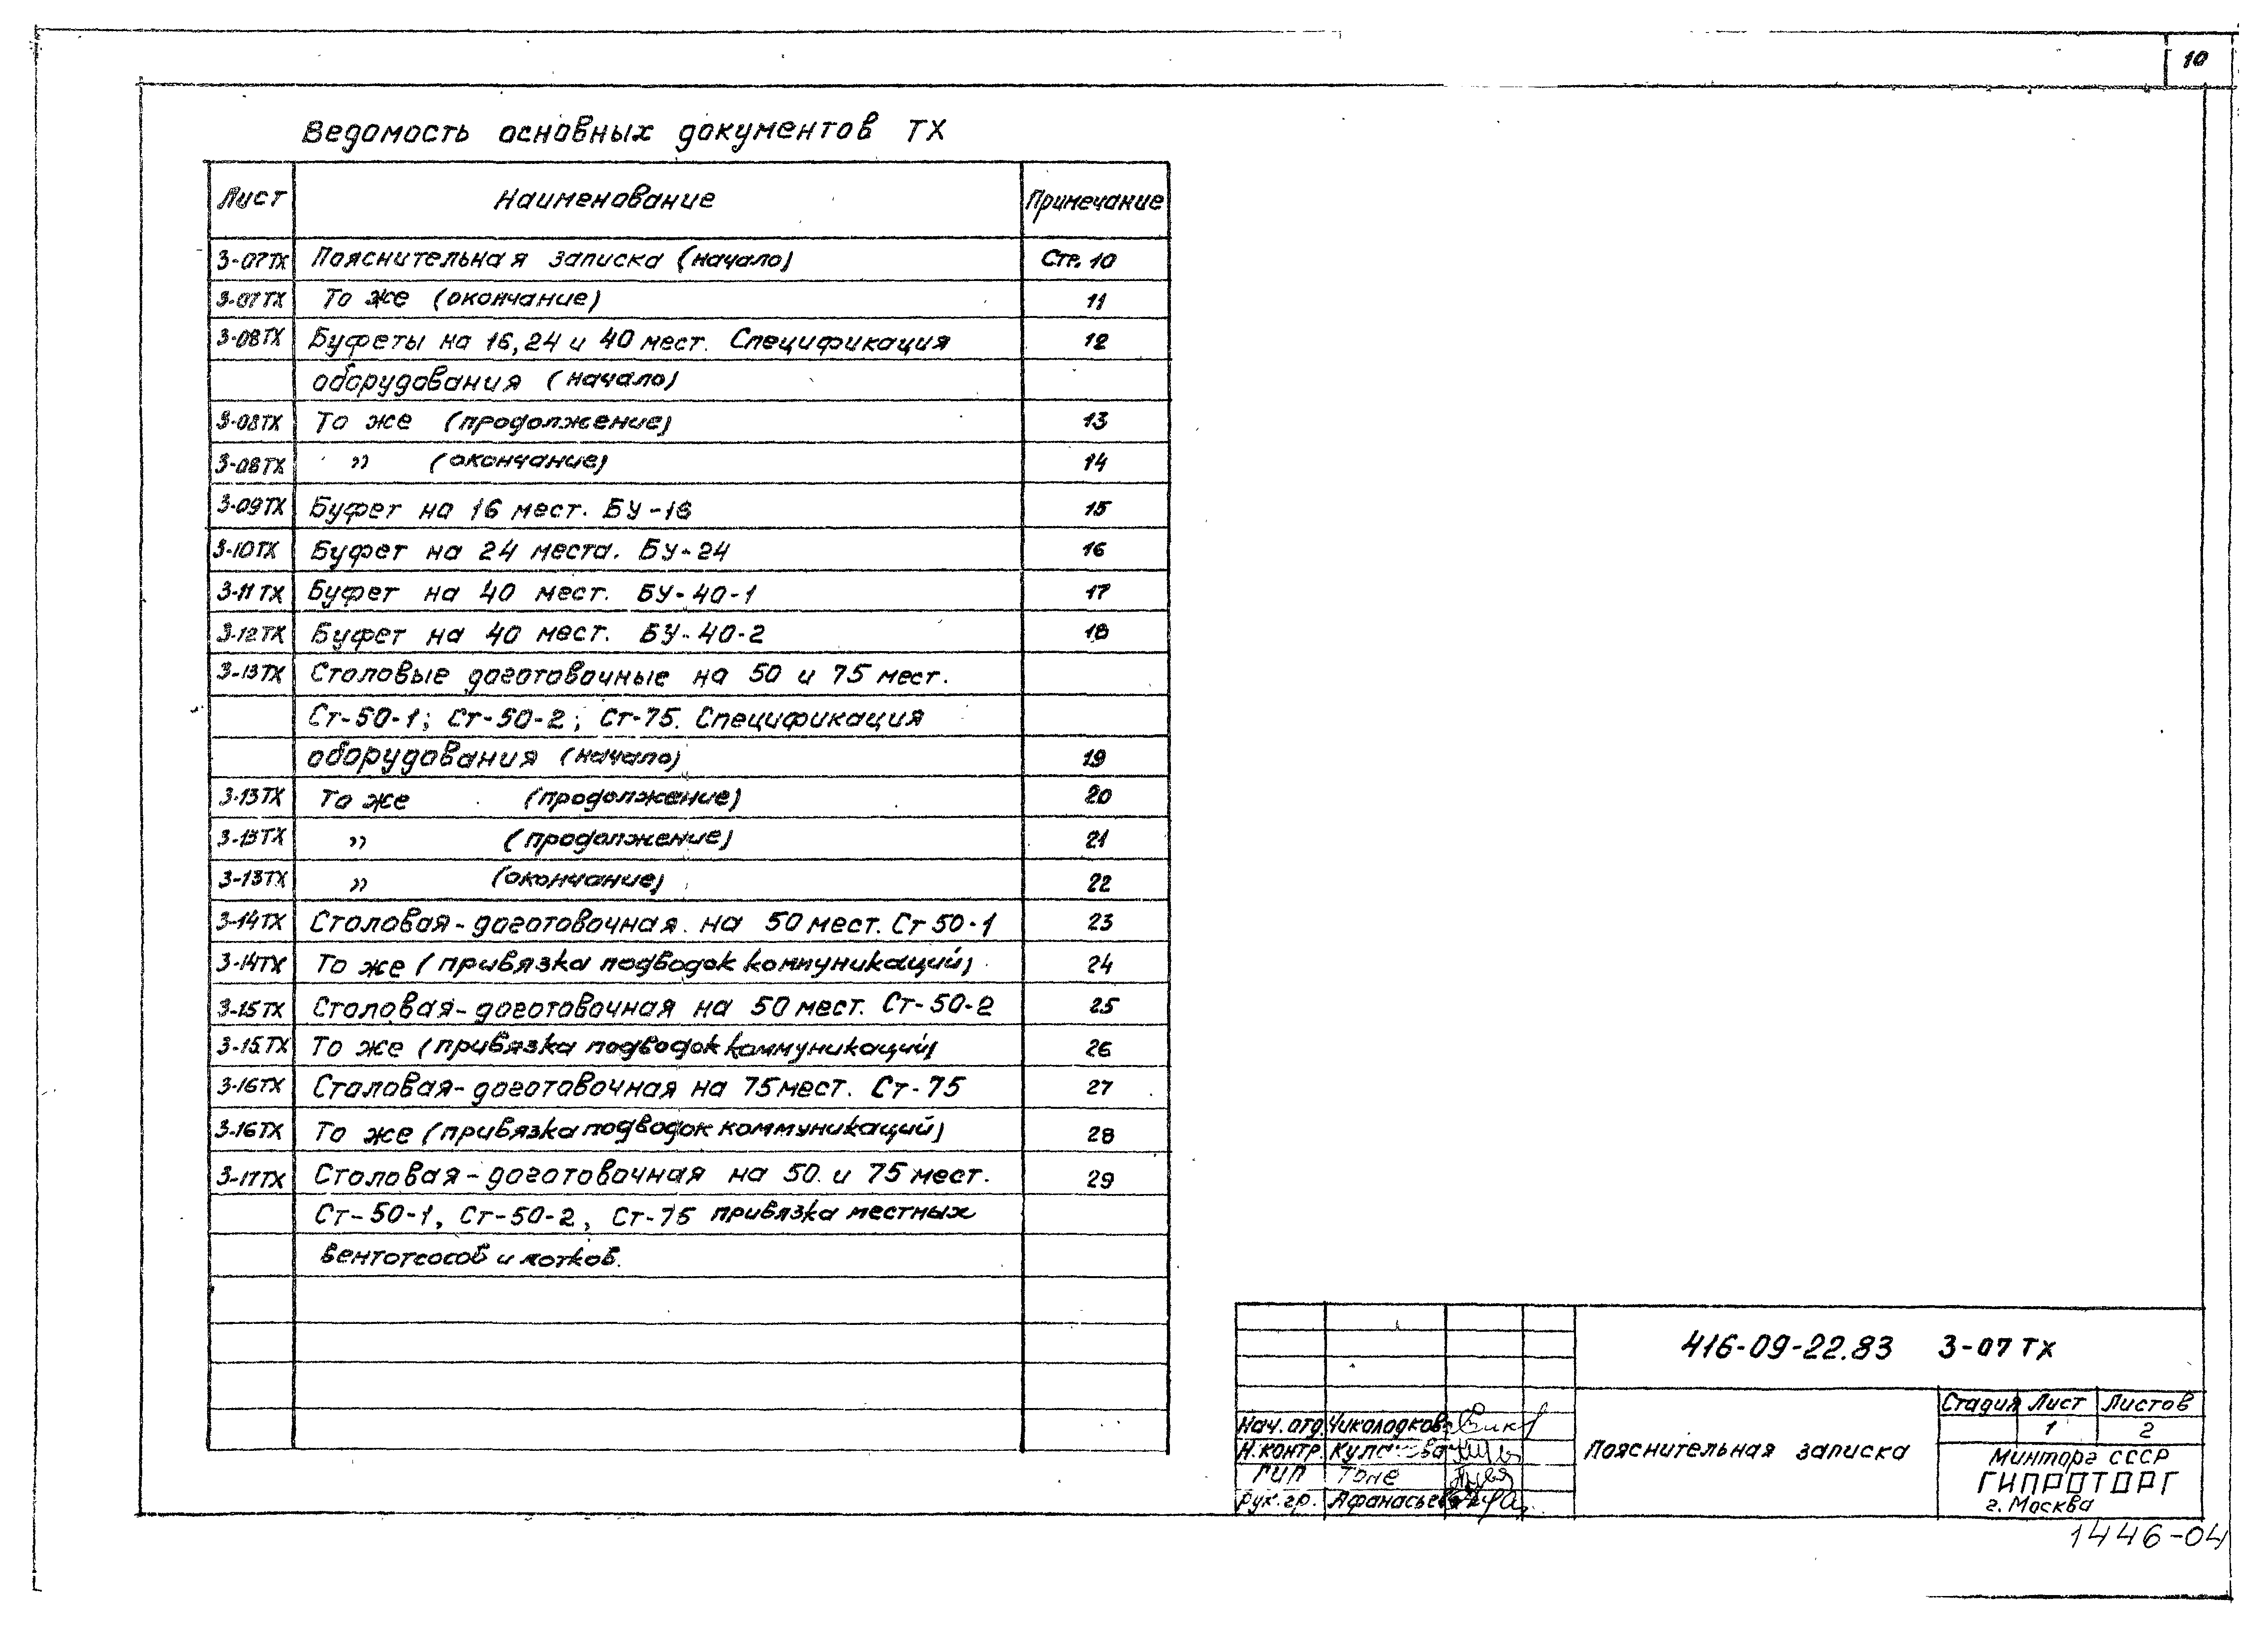 10
Ведомость основных документов ТХ
Лист Наименование Примечание
3-07ТХ Пояснительная записка (начало) Стр. 10
3-07ТХ То же (окончание) 11
3-08ТХ Буфеты на 16, 24 и 40 мест. Спецификация 12
оборудования (начало)
3-08ТХ То же (продолжение) 13
3-08ТХ " (окончание) 14
3-09ТХ Буфет на 16 мест. БУ-16 15
3-10ТХ Буфет на 24 места. БУ-24 16
3-11ТХ Буфет на 40 мест. БУ-40-1 17
3-12ТХ Буфет на 40 мест. БУ-40-2 18
3-13ТХ Столовые доготовочные на 50 и 75 мест.
Ст-50-1; Ст-50-2; Ст-75. Спецификация
оборудования (начало) 19
3-13ТХ То же (продолжение) 20
3-13ТХ " (продолжение) 21
3-13ТХ " (окончание) 22
3-14ТХ Столовая-доготовочная на 50 мест. Ст 50-1 23
3-14ТХ То же (привязка подводок коммуникаций) 24
3-15ТХ Столовая-доготовочная на 50 мест. Ст-50-2 25
3-15ТХ То же (привязка подводок коммуникаций) 26
3-16ТХ Столовая-доготовочная на 75 мест. Ст-75 27
3-16ТХ То же (привязка подводок коммуникаций) 28
3-17ТХ Столовая-доготовочная на 50 и 75 мест. 29
Ст-50-1, Ст-50-2, Ст-75 привязка местных
вентотсосов и лотков.
416-09-22.83 3-07 ТХ
Стадия Лист Листов
1 2
Нач. отд. Чиколодков
Н. контр.
ГИП Тоне
Рук. гр. Афанасьева
Пояснительная записка
Минторг СССР
ГИПРОТОРГ
г. Москва
1446-04